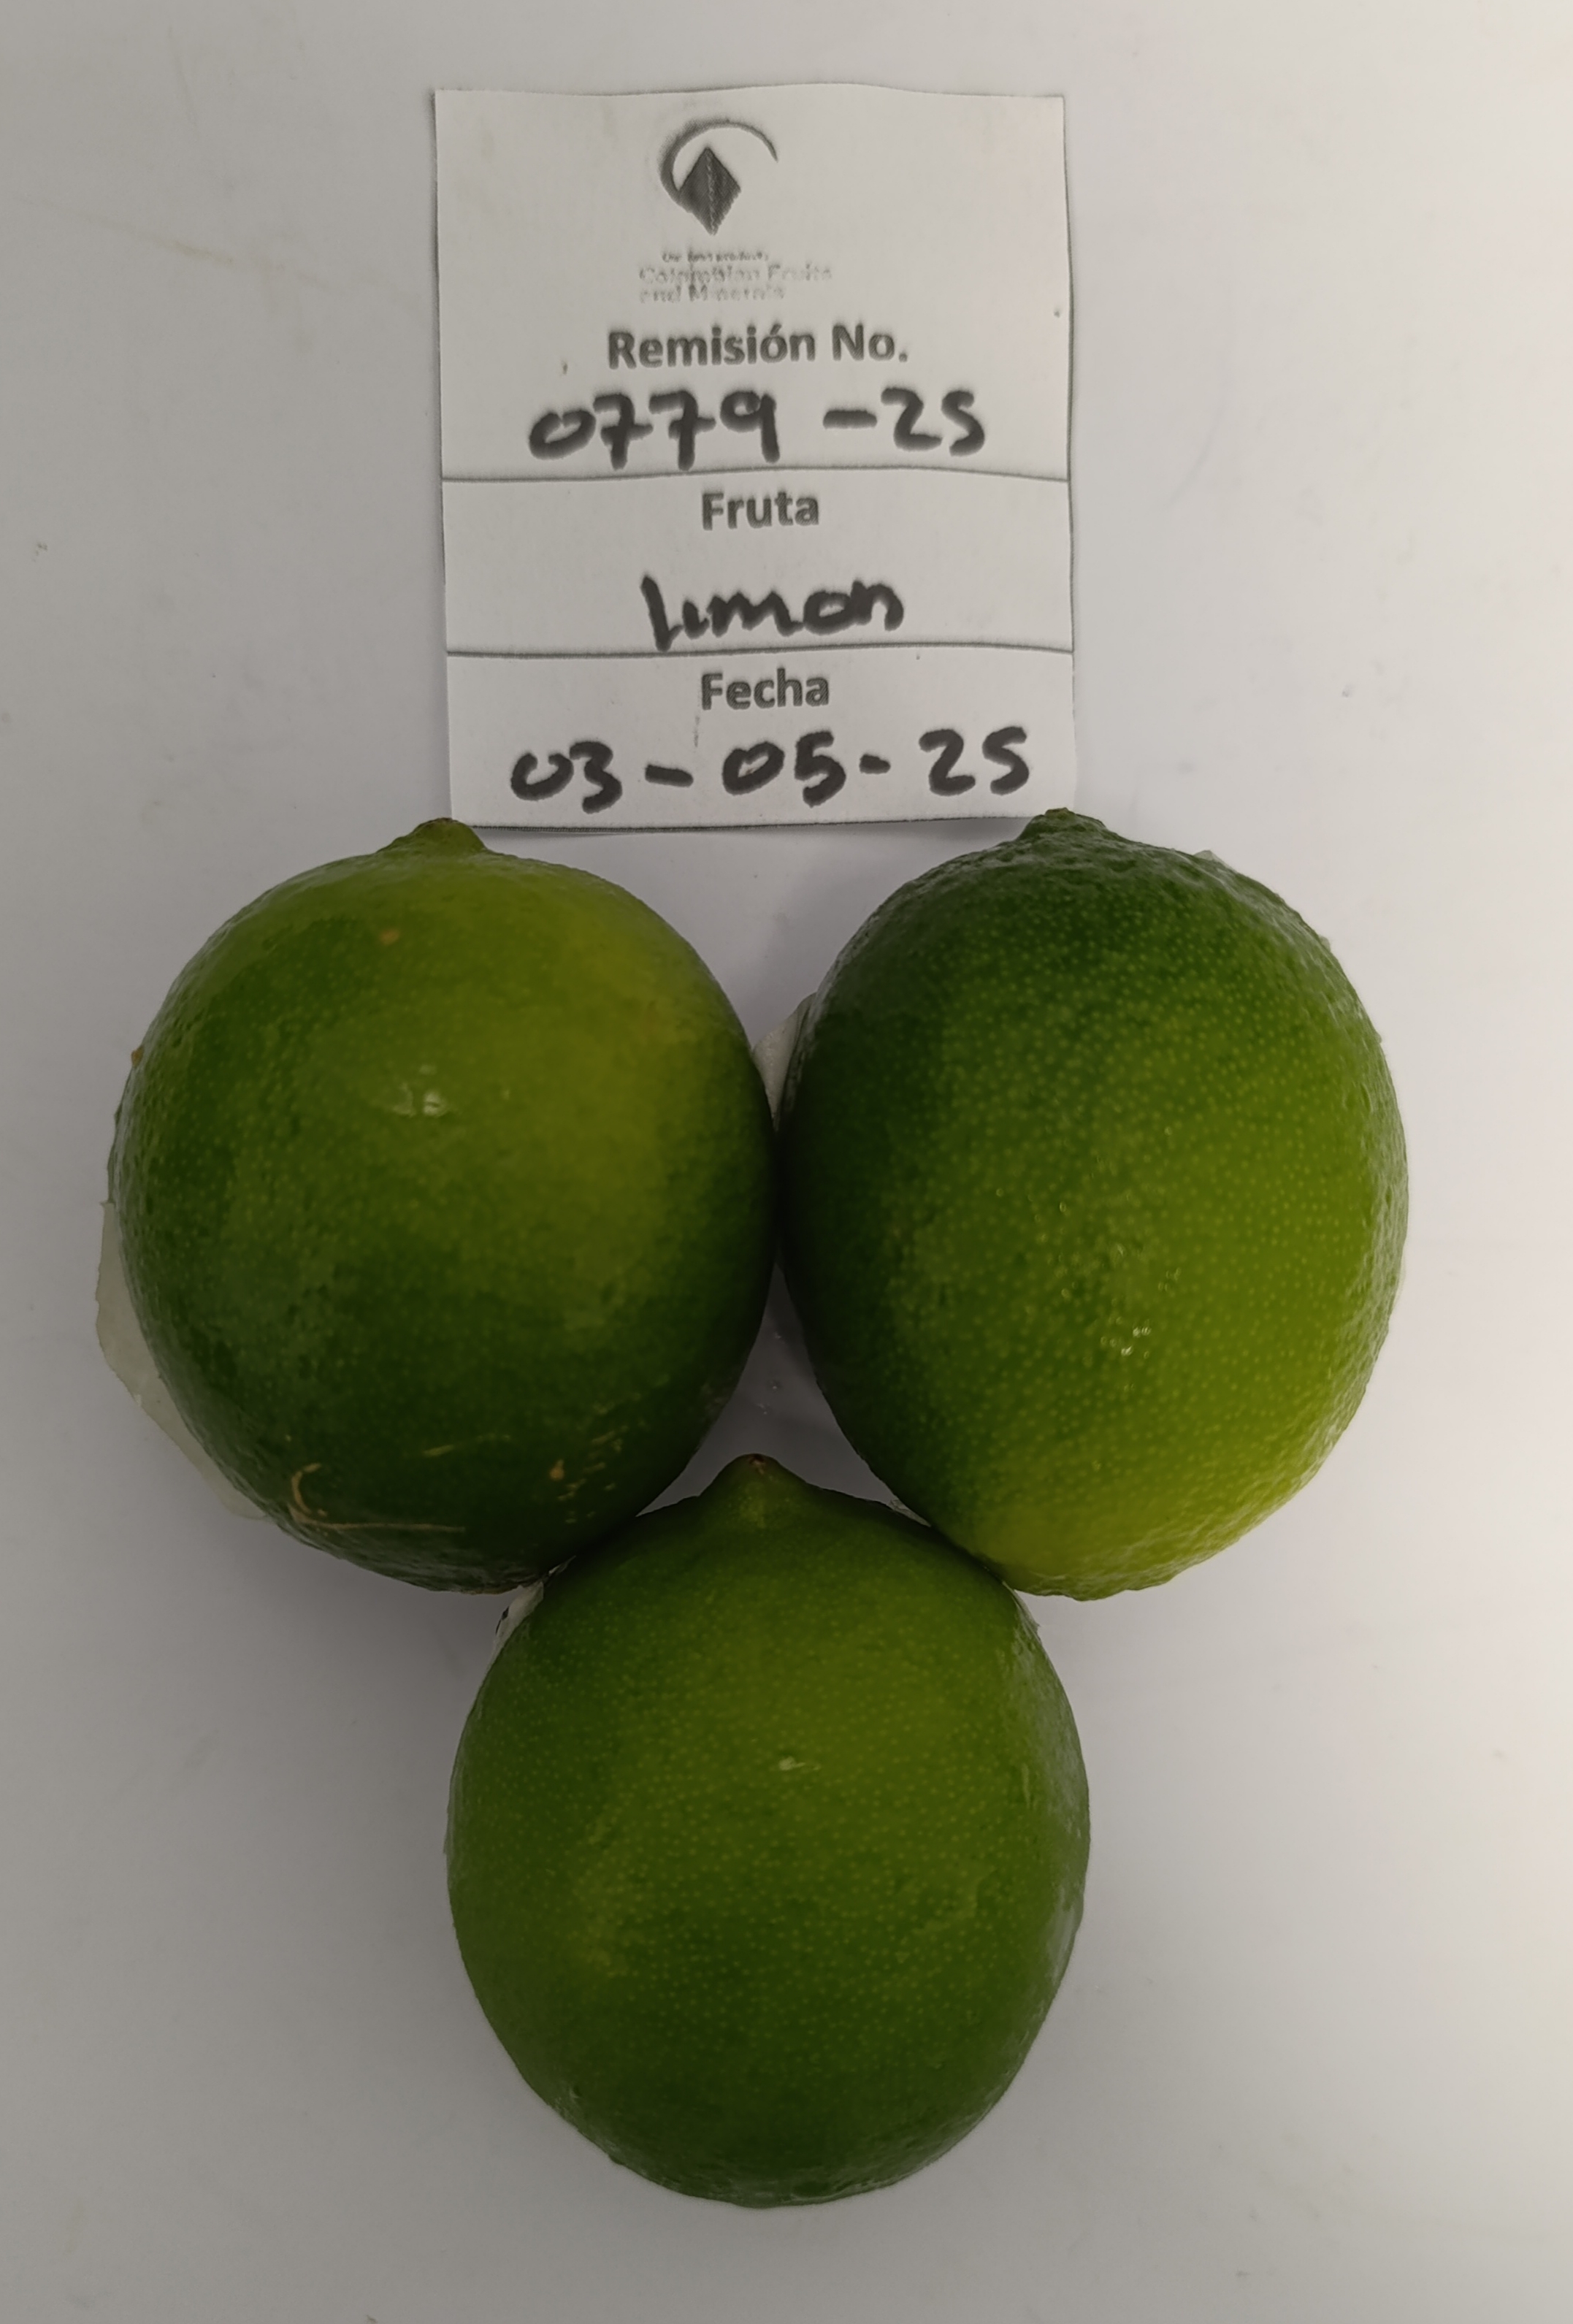 Colombian Fruits
and Minerals
Remisión No.
0779-25
Fruta
Limon
Fecha
03-05-25